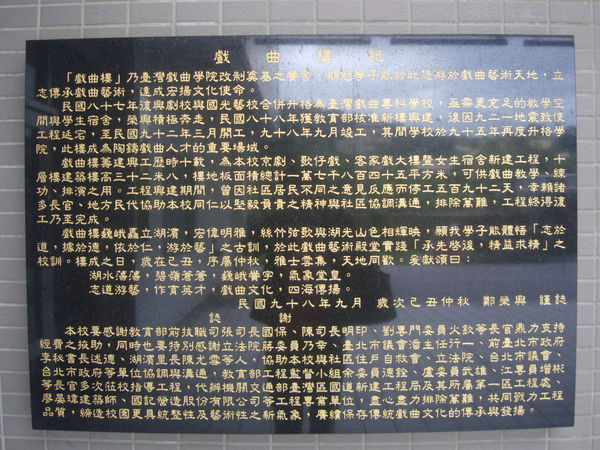 戲曲樓記
「戲曲樓」乃臺灣戲曲學院改制奠基之黌舍，期勉學子能於此悠游於戲曲藝術天地，立
志傳承戲曲藝術，達成宏揚文化使命。
民國八十七年復興劇校與國光藝校合併升格為臺灣戲曲專科學校，亟需更充足的教學空
間與學生宿舍，榮興積極奔走，民國八十八年獲教育部核准新樓興建，後因九二一地震致使
工程延宕，至民國九十二年三月開工，九十八年九月竣工，其間學校於九十五年再度升格學
院，此樓成為陶鑄戲曲人才的重要場域。
戲曲樓籌建興工歷時十載，為本校京劇、歌仔戲、客家戲大樓暨女生宿舍新建工程，十
層樓建築樓高三十二米八，樓地板面積總計一萬七千八百四十五平方米，可供戲曲教學、練
功、排演之用。工程興建期間，曾因社區居民不同之意見反應而停工五百九十二天，幸賴諸
多長官、地方民代協助本校同仁以堅毅負責之精神與社區協調溝通，排除萬難，工程終得復
工乃至完成。
戲曲樓巍峨矗立湖濱，宏偉明雅，絲竹弦歌與湖光山色相輝映，願我學子能體悟「志於
道，據於德，依於仁，游於藝」之古訓，於此戲曲藝術殿堂實踐「承先啟後，精益求精」之
校訓。樓成之日，歲在己丑，序屬仲秋，雅士雲集，天地同歡。爰獻頌曰：
湖水蕩蕩，碧嶺蒼蒼，巍峨黌宇，氣象堂皇。
志道游藝，作育英才，戲曲文化，四海傳揚。
民國九十八年九月　歲次己丑仲秋　鄭榮興　謹誌
誌謝
本校要感謝教育部前技職司張司長國保、陳司長明印、劉專門委員火欽等長官鼎力支持
經費之挹助，同時也要特別感謝立法院蔣委員乃辛、臺北市議會潘主任一、前臺北市政府
李秘書長述德、湖濱里長陳尤雪等人，協助本校與社區住戶自救會、立法院、台北市議會、
台北市政府等單位協調與溝通，教育部工程監督小組余委員德銓、盧委員武雄、江專員增彬
等長官多次蒞校指導工程，代辦機關交通部臺灣區國道新建工程局及其所屬第一區工程處、
廖晏瑋建築師、國記營造股份有限公司等工程專業單位，盡心盡力排除萬難，共同戮力工程
品質，締造校園更具統整性及藝術性之新氣象，賡續保存傳統戲曲文化的傳承與發揚。